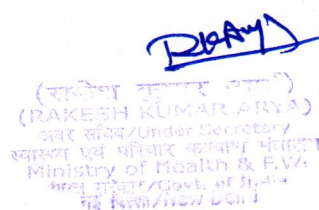 (राकेश कुमार आर्या)
(RAKESH KUMAR ARYA)
अवर सचिव/Under Secretary
स्वास्थ्य एवं परिवार कल्याण मंत्रालय
Ministry of Health & F.W.
भारत सरकार/Govt. of India
नई दिल्ली/New Delhi